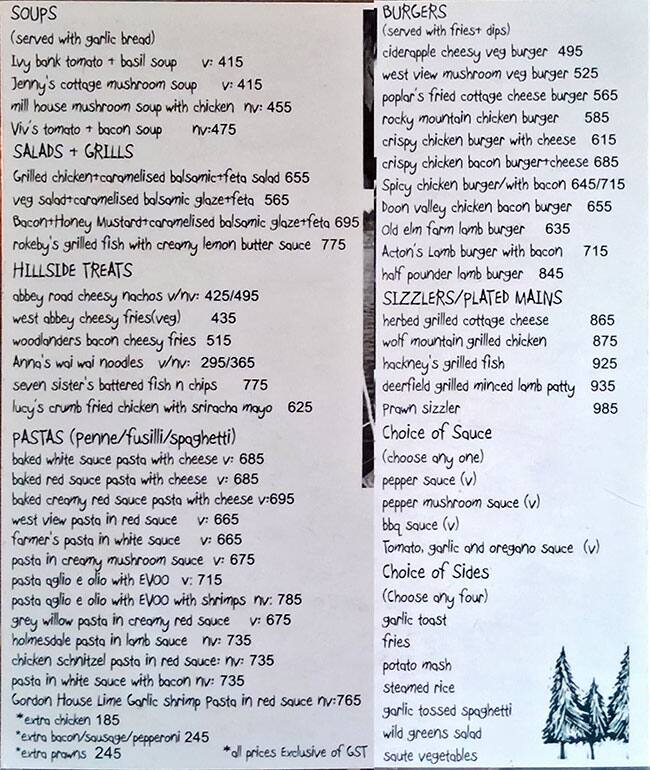 SOUPS
(served with garlic bread)
Ivy bank tomato + basil soup v: 415
Jenny's cottage mushroom soup v: 415
mill house mushroom soup with chicken nv: 455
Viv's tomato + bacon soup nv:475
SALADS + GRILLS
Grilled chicken+caramelised balsamic+feta salad 655
veg salad+caramelised balsamic glaze+feta 565
Bacon+Honey Mustard+caramelised balsamic glaze+feta 695
rokeby's grilled fish with creamy lemon butter sauce 775
HILLSIDE TREATS
abbey road cheesy nachos v/nv: 425/495
west abbey cheesy fries(veg) 435
woodlanders bacon cheesy fries 515
Anna's wai wai noodles v/nv: 295/365
seven sister's battered fish n chips 775
lucy's crumb fried chicken with sriracha mayo 625
PASTAS (penne/fusilli/spaghetti)
baked white sauce pasta with cheese v: 685
baked red sauce pasta with cheese v: 685
baked creamy red sauce pasta with cheese v:695
west view pasta in red sauce v: 665
farmer's pasta in white sauce v: 665
pasta in creamy mushroom sauce v: 675
pasta aglio e olio with EVOO v: 715
pasta aglio e olio with EVOO with shrimps nv: 785
grey willow pasta in creamy red sauce v: 675
holmesdale pasta in lamb sauce nv: 735
chicken schnitzel pasta in red sauce: nv: 735
pasta in white sauce with bacon nv: 735
Gordon House Lime Garlic shrimp Pasta in red sauce nv:765
*extra chicken 185
*extra bacon/sausage/pepperoni 245
*extra prawns 245
*all prices Exclusive of GST
BURGERS
(served with fries+ dips)
ciderapple cheesy veg burger 495
west view mushroom veg burger 525
poplar's fried cottage cheese burger 565
rocky mountain chicken burger 585
crispy chicken burger with cheese 615
crispy chicken bacon burger+cheese 685
Spicy chicken burger/with bacon 645/715
Doon valley chicken bacon burger 655
Old elm farm lamb burger 635
Acton's Lamb burger with bacon 715
half pounder lamb burger 845
SIZZLERS/PLATED MAINS
herbed grilled cottage cheese 865
wolf mountain grilled chicken 875
hackney's grilled fish 925
deerfield grilled minced lamb patty 935
Prawn sizzler 985
Choice of Sauce
(choose any one)
pepper sauce (v)
pepper mushroom sauce (v)
bbq sauce (v)
Tomato, garlic and oregano sauce (v)
Choice of Sides
(Choose any four)
garlic toast
fries
potato mash
steamed rice
garlic tossed spaghetti
wild greens salad
saute vegetables